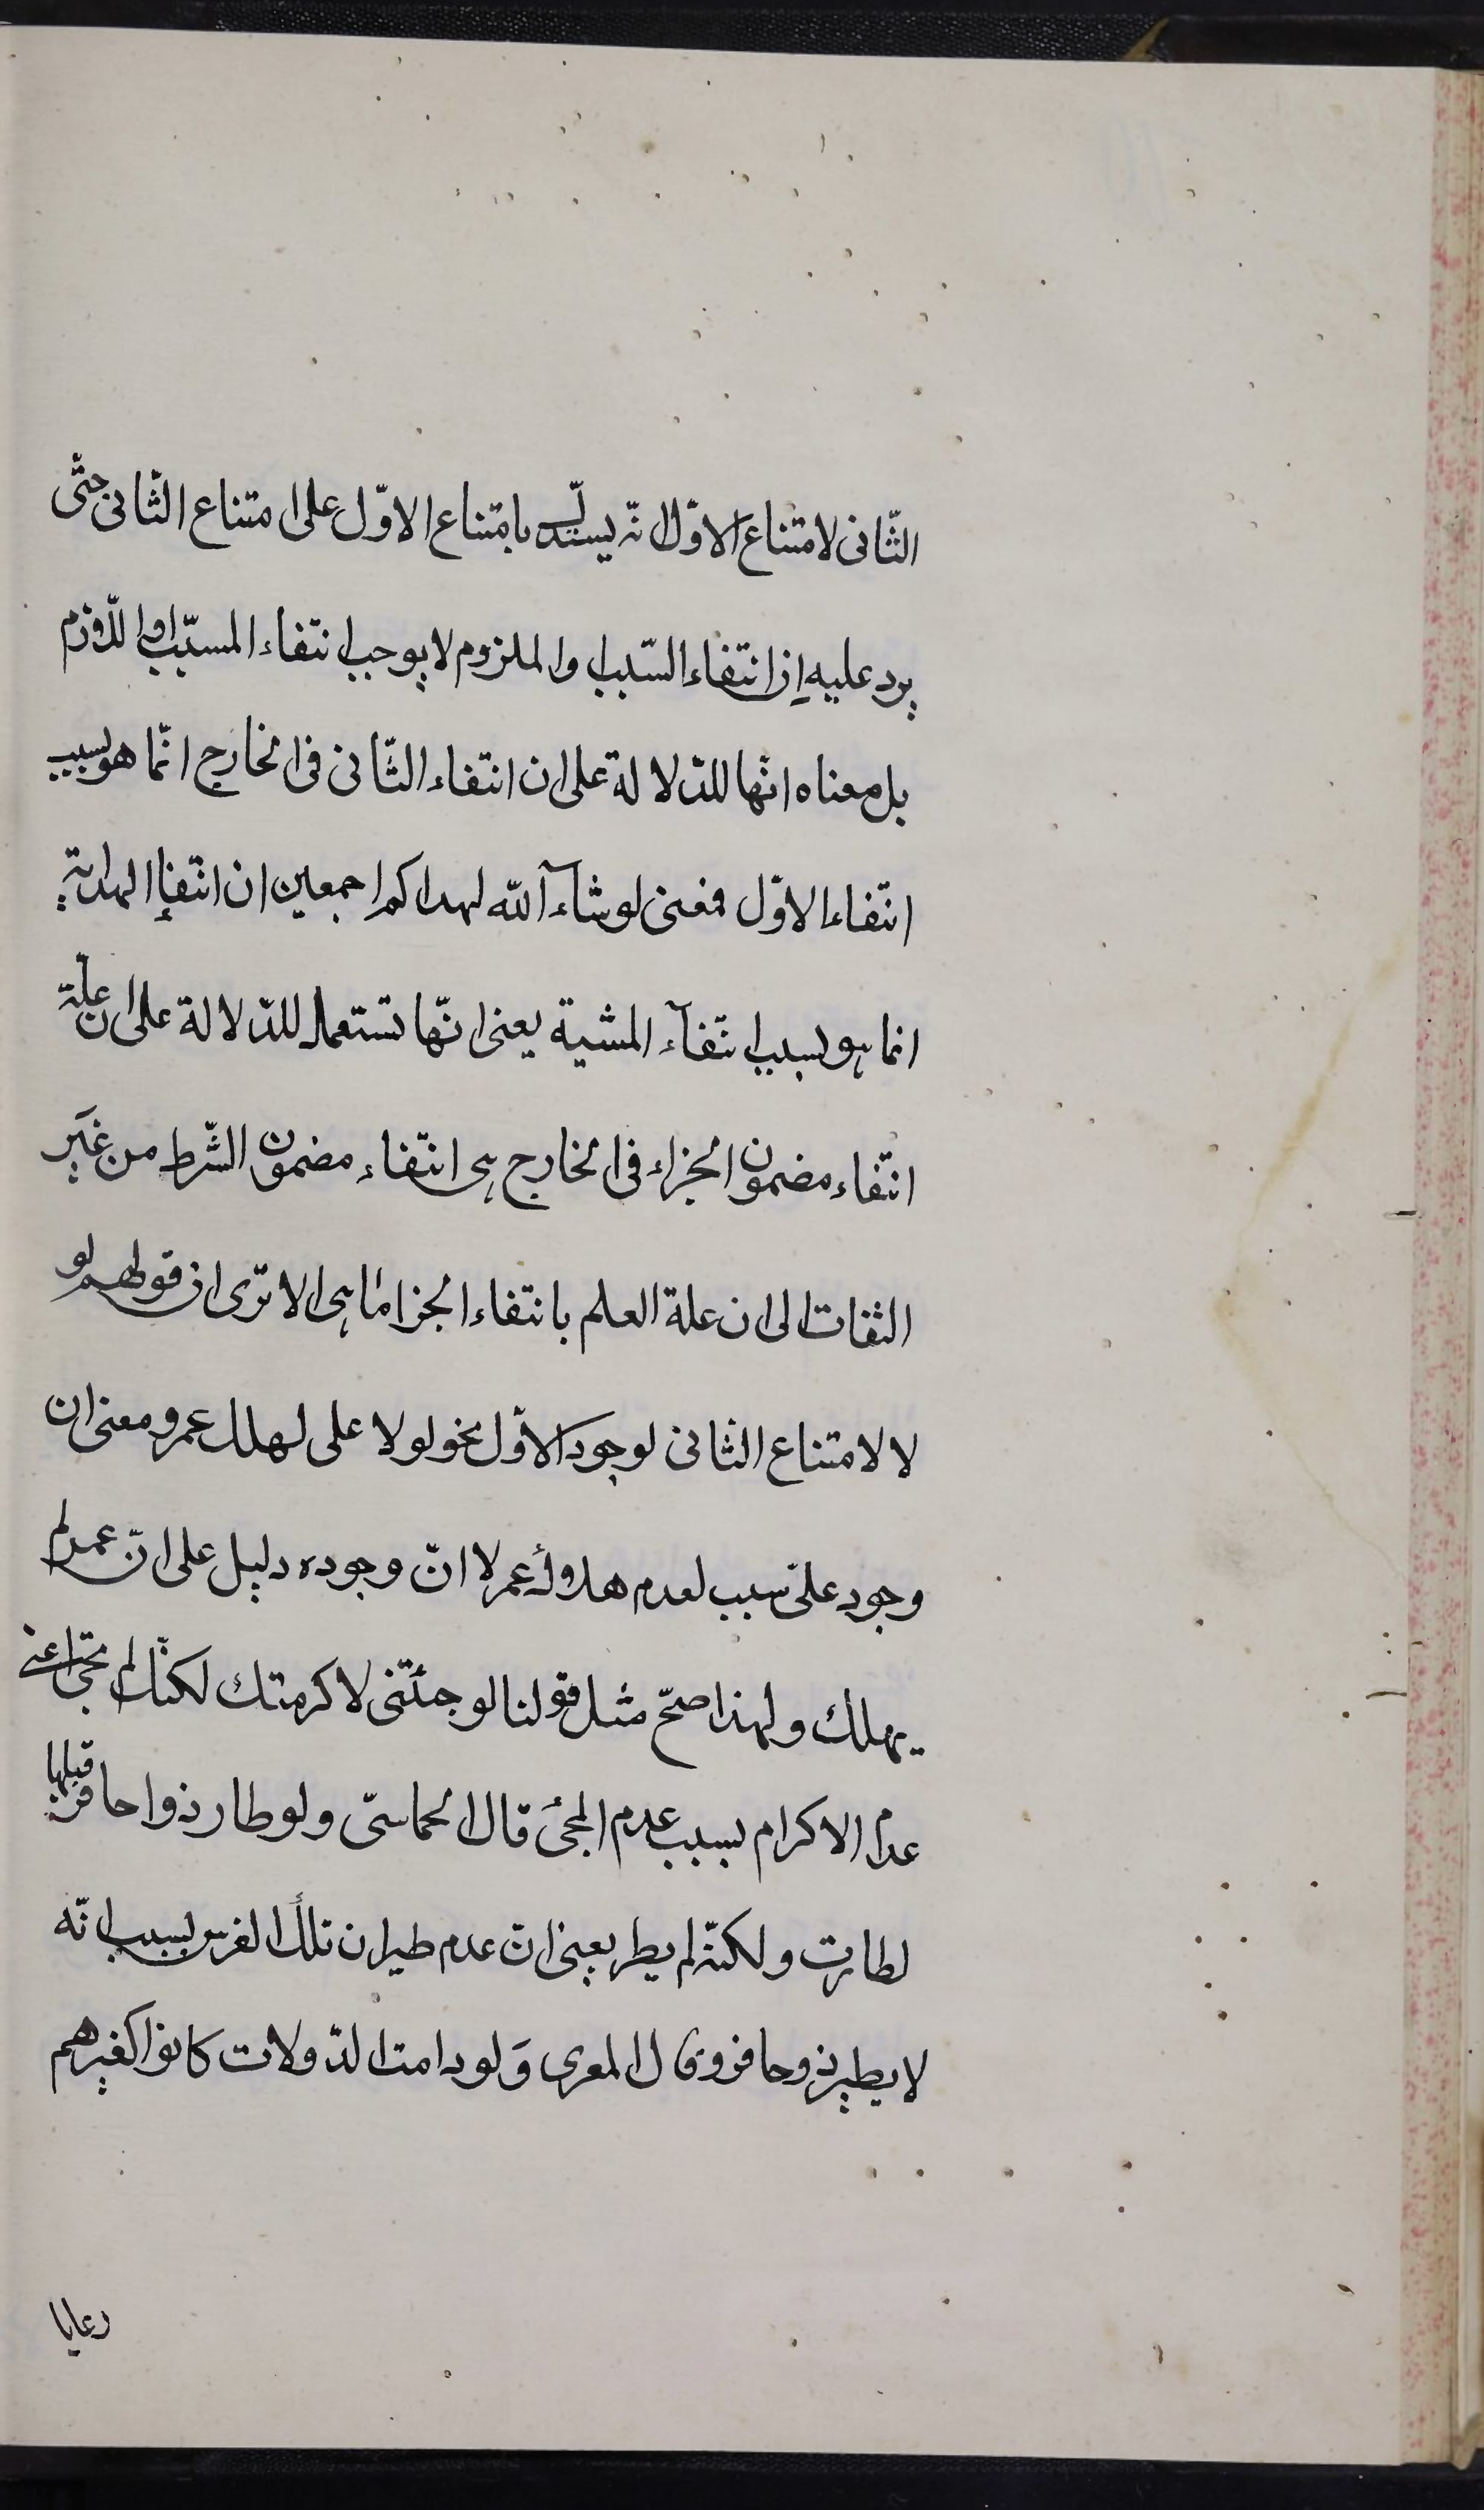 الثّانی لامتناع الاوّل انّه یستدلّ بامتناع الاوّل علی امتناع الثّانی حتّی
یرد علیه ان انتفاء السّبب او الملزوم لا یوجب انتفاء المسبّب او اللّازم
بل معناه انّها للدّلالة علی ان انتفاء الثّانی فی الخارج انّما هو بسبب
انتفاء الاوّل فمعنی لو شآء اللّه لهداکم اجمعین ان انتفاء الهدایة
انما هو بسبب انتفآء المشیة یعنی انّها تستعمل للدّلالة علی ان علّة
انتفاء مضمون الجزاء فی الخارج هی انتفاء مضمون الشّرط من غیر
التفات الی ان علة العلم بانتفاء الجزا ماهی الا تری ان قولهم لو
لا لامتناع الثانی لوجود الاوّل نحو لولا علی لهلك عمرو معنی ان
وجود علیّ سبب لعدم هلاك عمر لا انّ وجوده دلیل علی انّ عمر لم
یهلك ولهذا صحّ مثل قولنا لو جئتنی لاکرمتك لکنّك لم تجئ اعنی
عدم الاکرام بسبب عدم المجئ قال الحماسیّ ولو طار ذوا حافر قبلها
لطارت ولکنّه لم یطر یعنی انّ عدم طیران تلك الفرس بسبب انّه
لا یطیر ذو حافر وقال المعری وَلو دامت الدّولات کانوا کغیرهم
رعایا